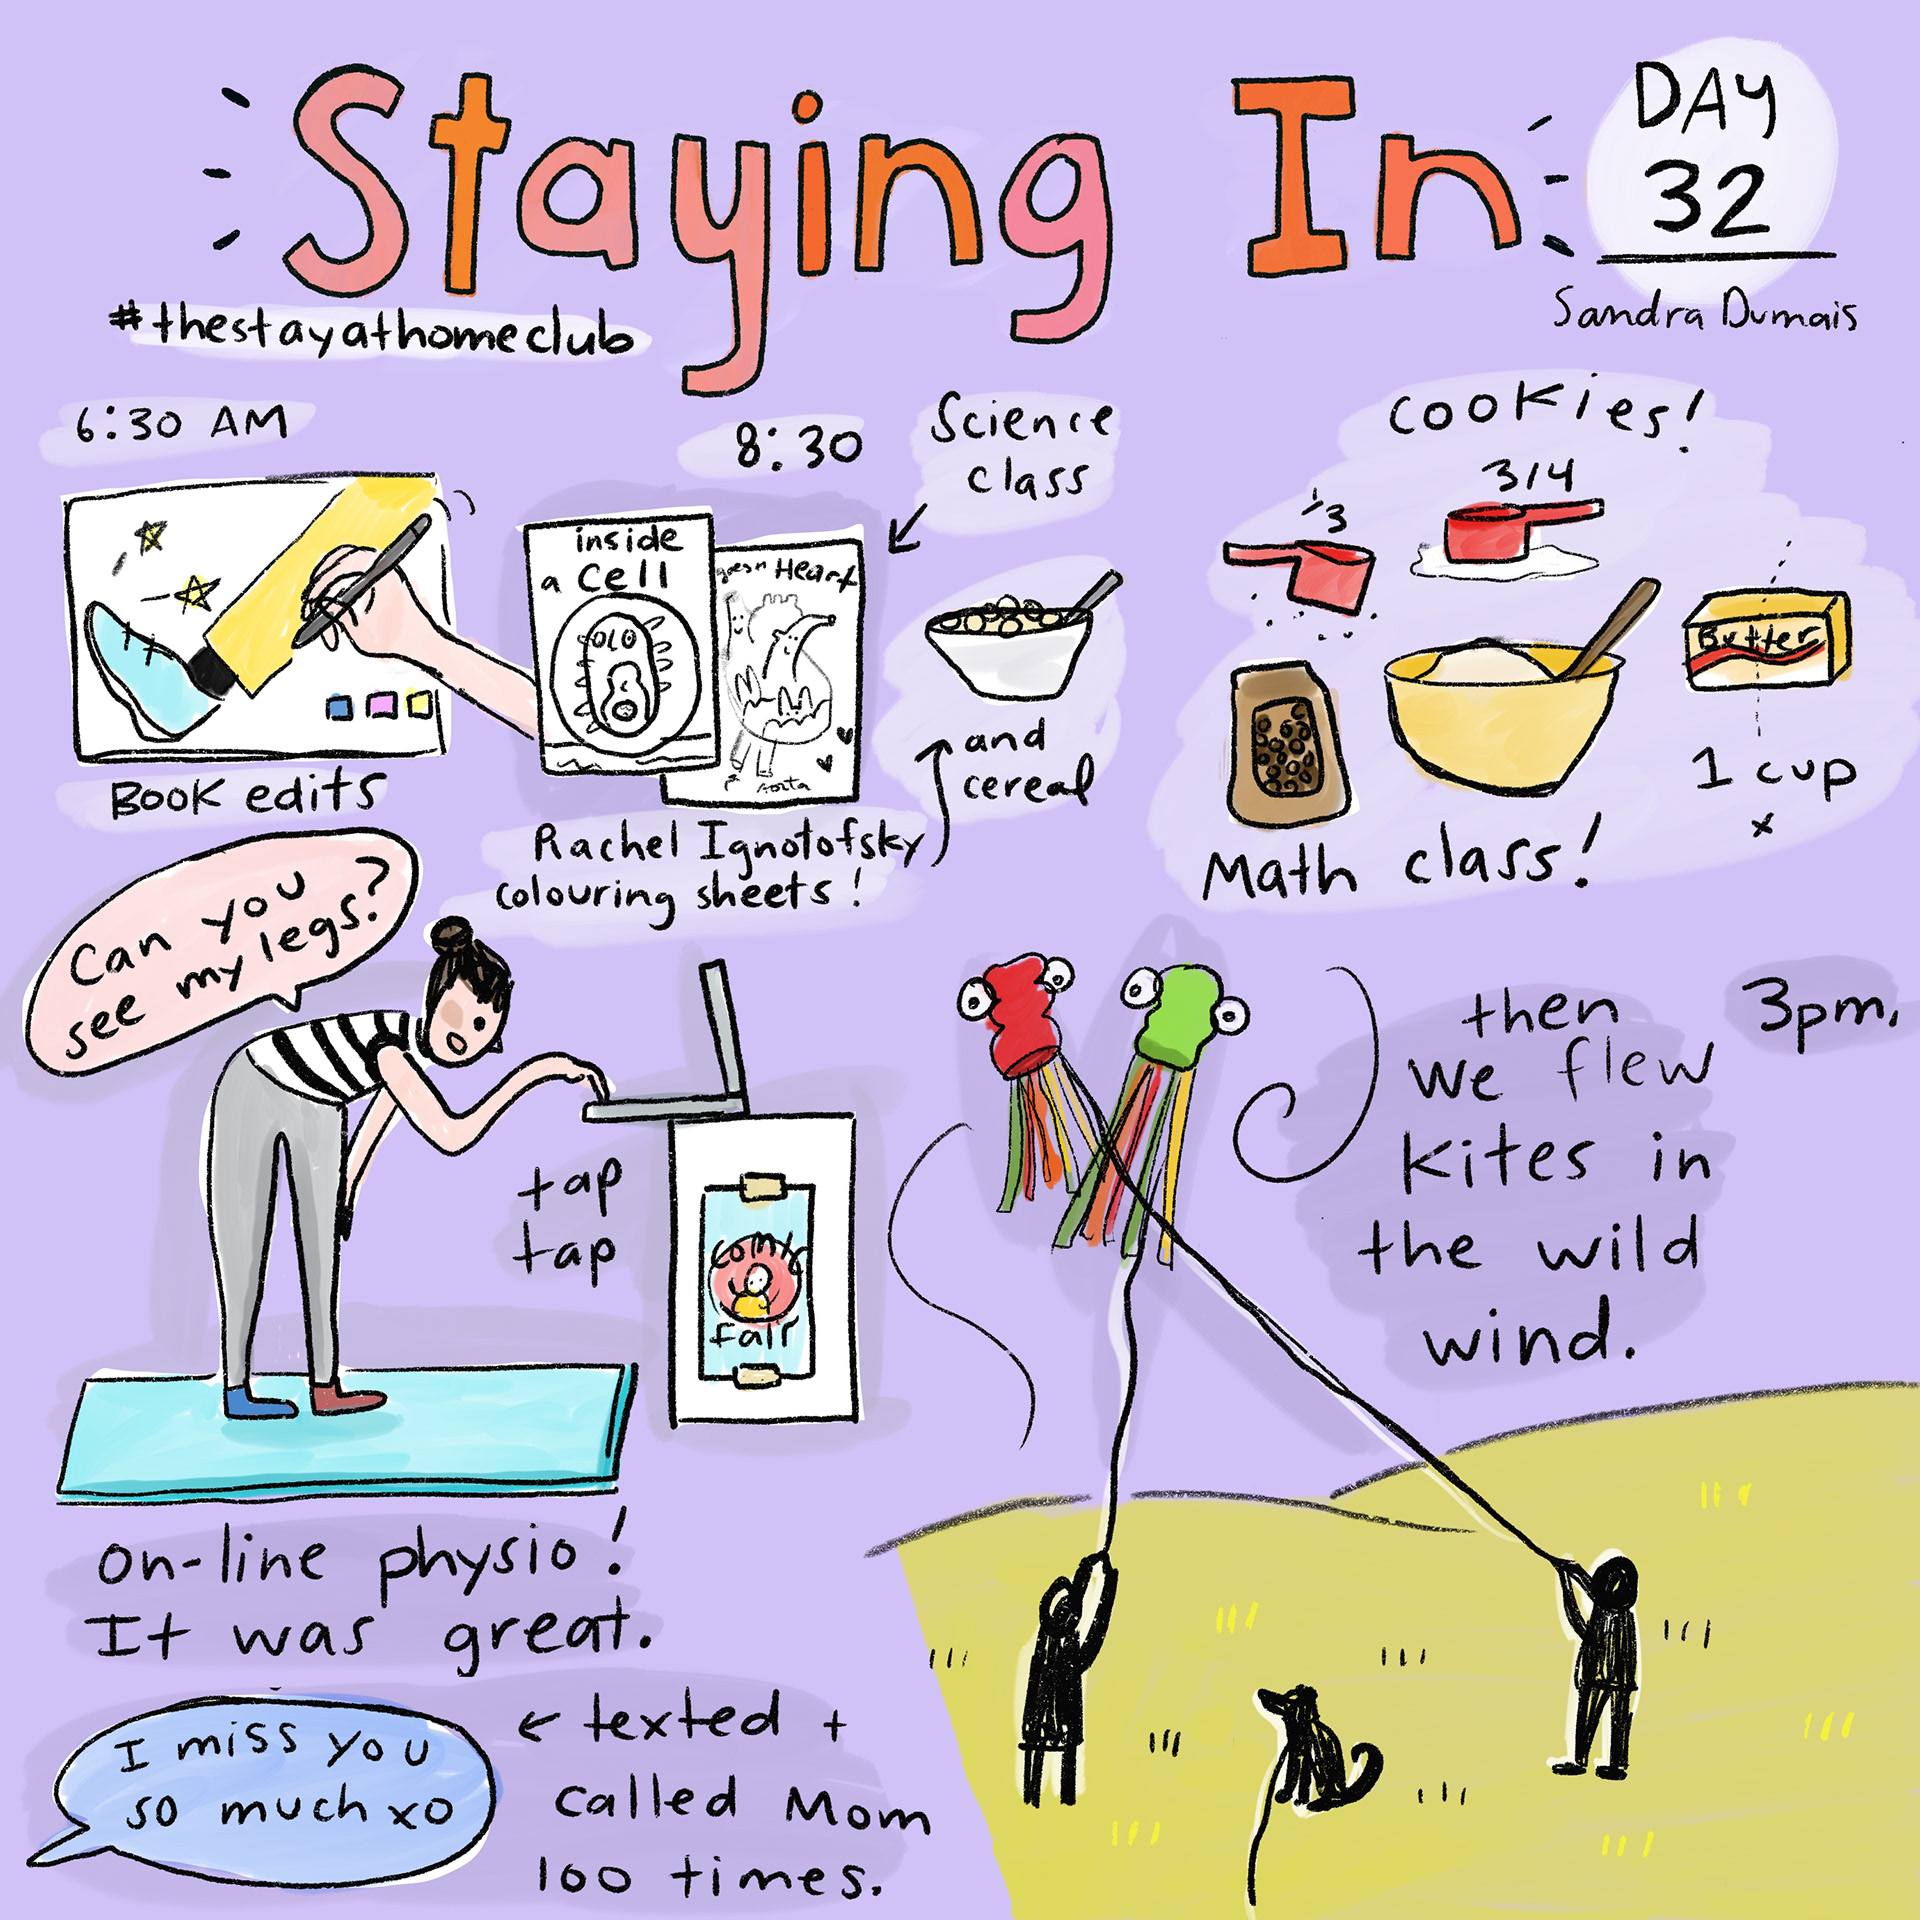 Staying In
DAY
32
Sandra Dumais
#thestayathomeclub
6:30 AM
Book edits
8:30
Science
class
inside
a cell
Heart
Aorta
and
cereal
Rachel Ignotofsky
colouring sheets!
cookies!
1/3
3/4
Butter
1 cup
x
Math class!
Can you
see my legs?
tap
tap
comic
fair
on-line physio!
It was great.
3pm.
then
we flew
kites in
the wild
wind.
I miss you
so much xo
← texted +
called Mom
100 times.